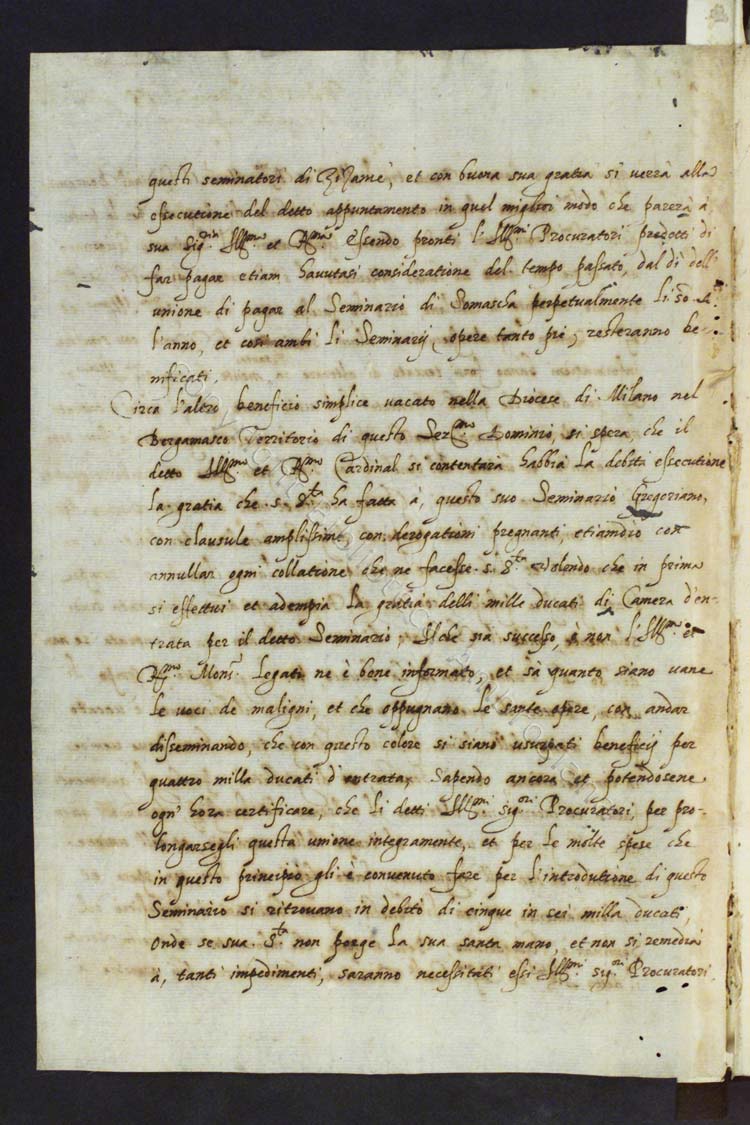 questi seminatori di Zizanie, et con buona sua gratia si verrà alla
essecutione del detto appuntamento in quel miglior modo che parerà a
sua Sig.ria Ill.ma et R.ma Essendo pronti l'Ill.mi Procuratori predetti di
far pagar etiam havutasi consideratione del tempo passato, dal dì dell'
unione di pagar al Seminario di Somascha perpetualmente li
l'anno, et così ambi li Seminarij, opere tanto pie, resteranno be-
nificati.
Circa l'altro beneficio simplice vacato nella Diocese di Milano nel
Bergamasco Territorio di questo Ser.mo Dominio, si spera, che il
detto Ill.mo et R.mo Cardinal si contentarà habbia la debita essecutione
la gratia che S. S.tà ha fatta à, questo suo Seminario Gregoriano,
con clausule amplissime, con derogationi pregnanti, etiamdio con
annullar ogni collatione che ne facesse S. S.tà volendo che in prima
si effettui et adempia la gratia delli mille ducati di Camera d'en-
trata per il detto Seminario; Il che sia successo, ò non l'Ill.mo et
R.mo Mons.r Legato ne è bene informato, et sà quanto siano vane
le voci de maligni, et che oppugnano le sante opere, con andar
disseminando, che con questo colore si siano usurpati beneficij per
quattro milla ducati d'entrata, Sapendo ancora et potendosene
ogn'hora certificare, che li detti Ill.mi sig.ri Procuratori, per pro-
longarsegli questa unione integramente, et per le molte spese che
in questo principio gli è convenuto fare per l'introdutione di questo
Seminario si ritrovano in debito di cinque in sei milla ducati,
Onde se sua S.tà non porge la sua santa mano, et non si remedia
à, tanti impedimenti, saranno necessitati essi Ill.mi sig.ri Procuratori